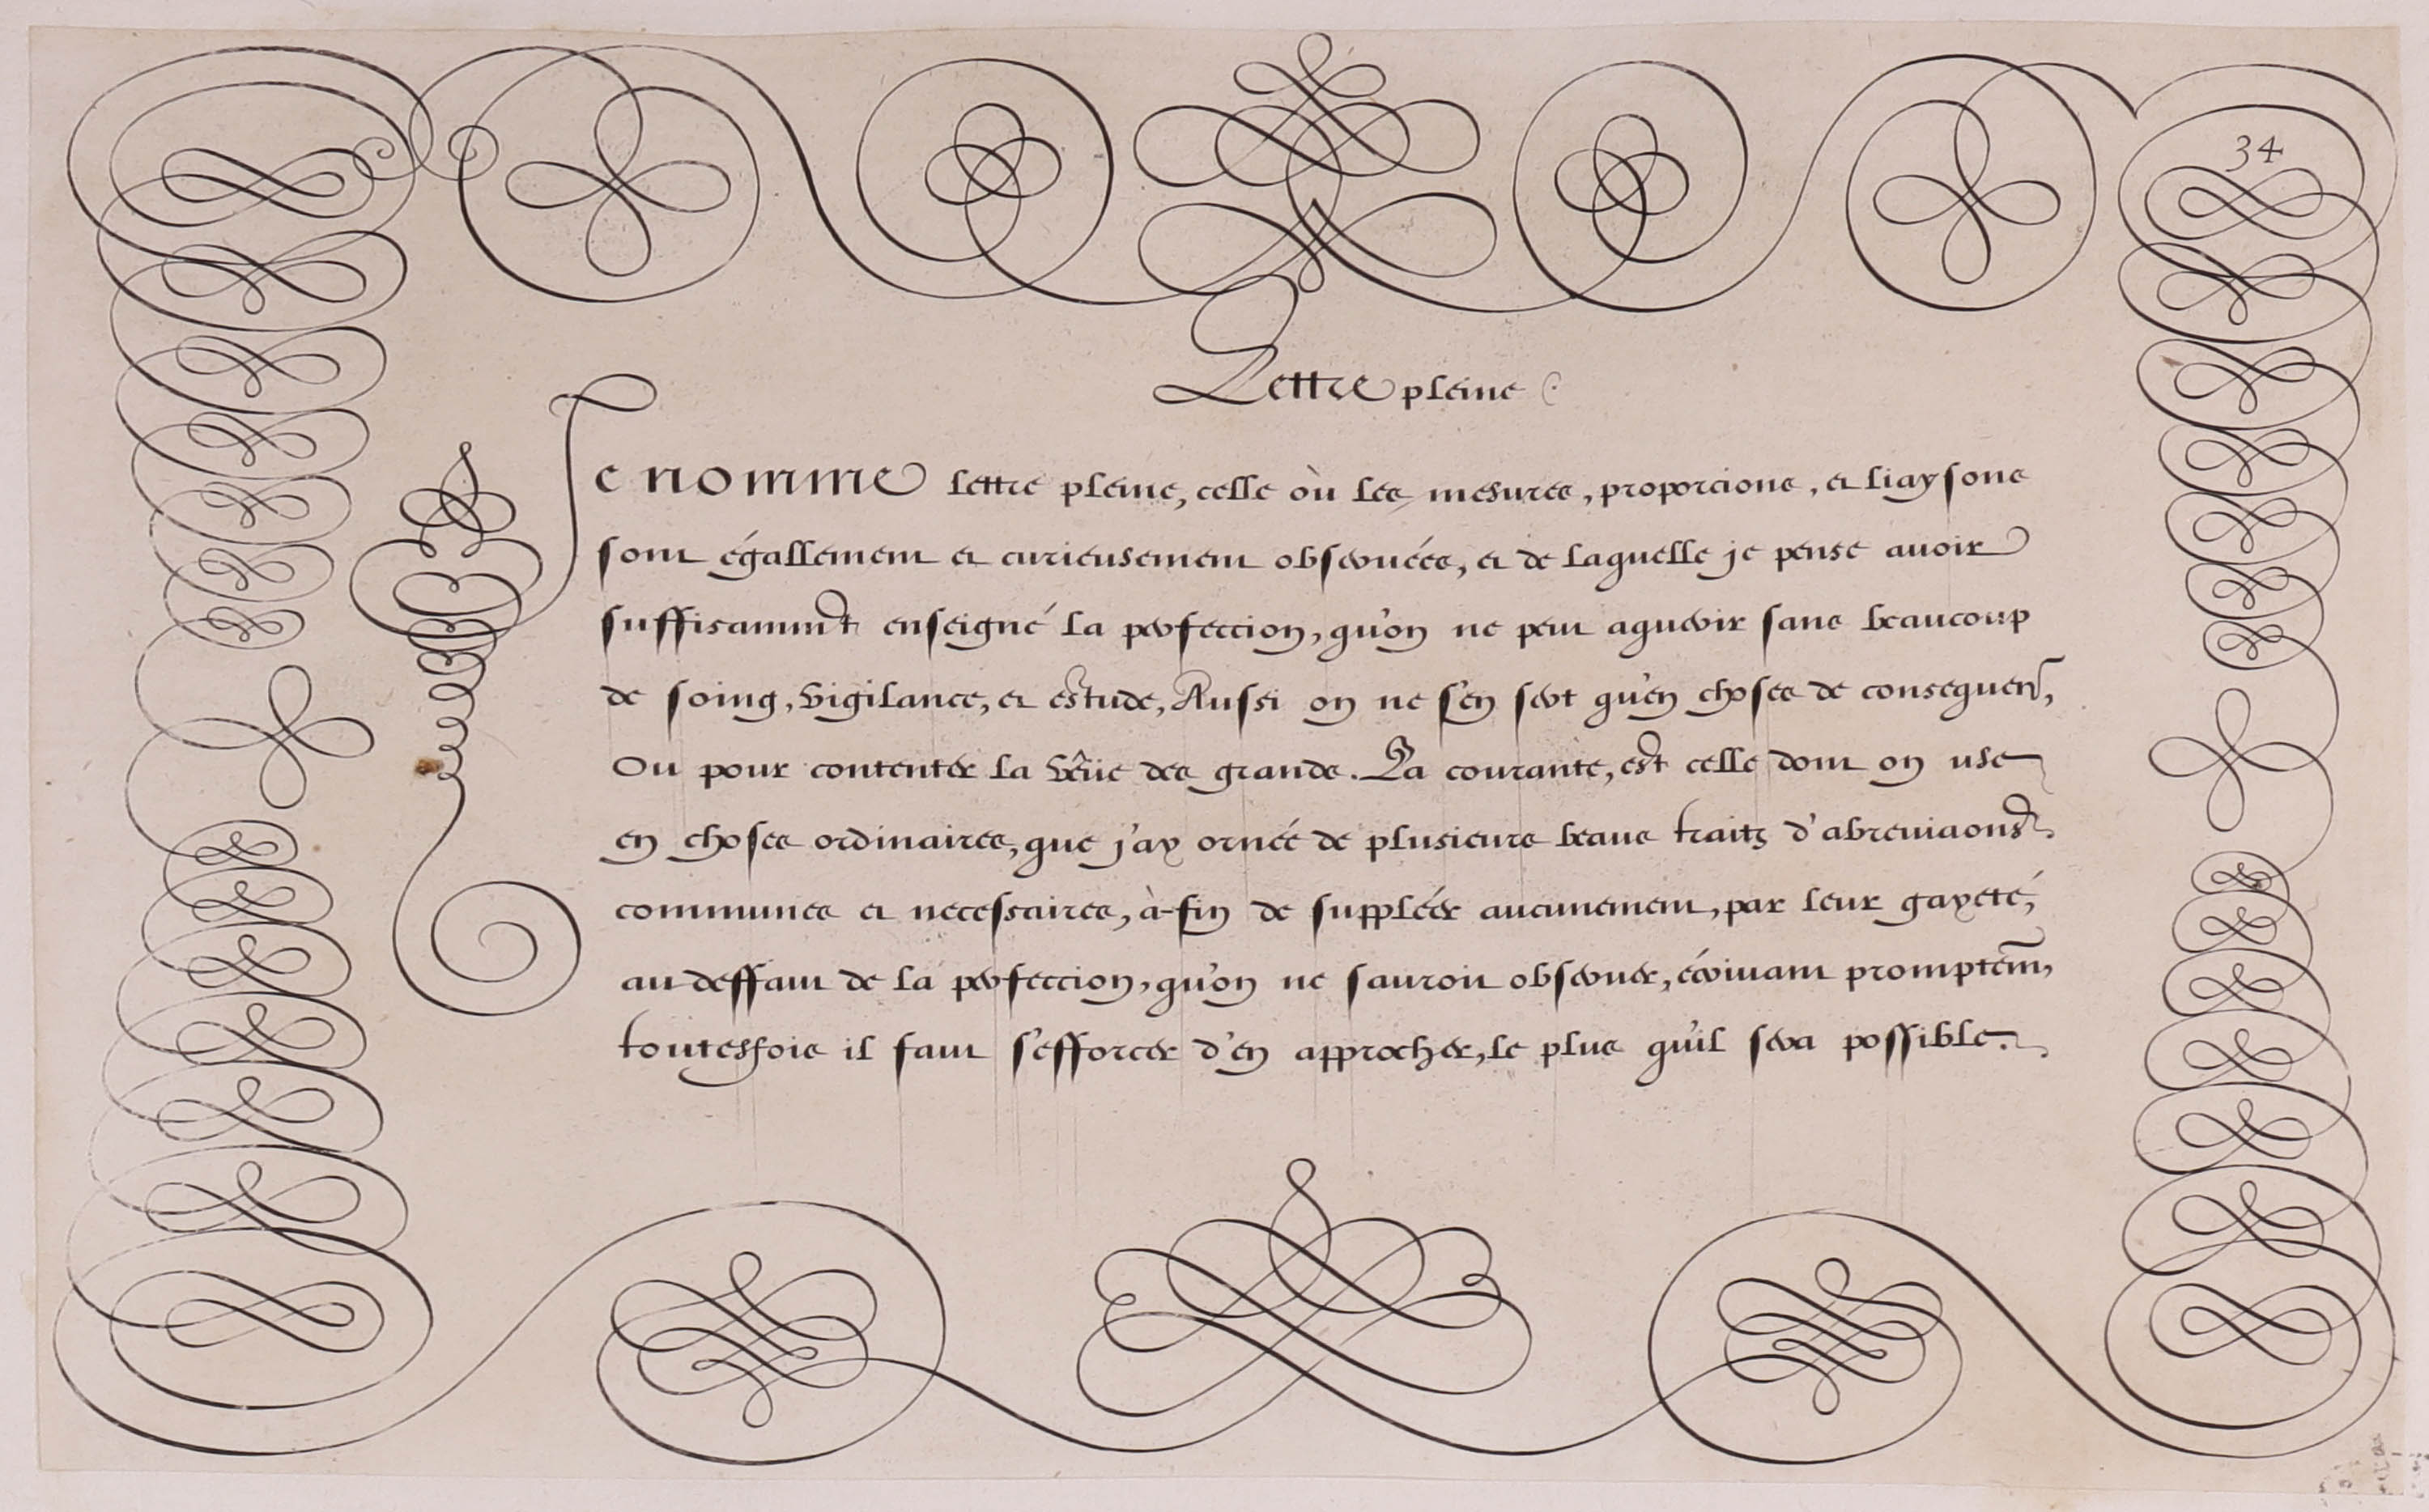 34
Lettre pleine
Je nomme lettre pleine, celle où les mesures, proporcions, et liaysons
sont égallement et curieusement obseruées, et de laquelle je pense auoir
suffisammt enseigné la perfection, qu'on ne peut aquerir sans beaucoup
de soing, vigilance, et estude, Aussi on ne s'en sert qu'en choses de consequen,
Ou pour contenter la vêüe des grands. La courante, est celle dont on use
en choses ordinaires, que j'ay ornée de plusieurs beaus traitz d'abreuiaons.
communes et necessaires, à-fin de suppléer aucunement, par leur gayeté,
au deffaut de la perfection, qu'on ne sauroit obseruer, écriuant promptem̃,
toutesfois il faut s'efforcer d'en approcher, le plus qu'il sera possible.